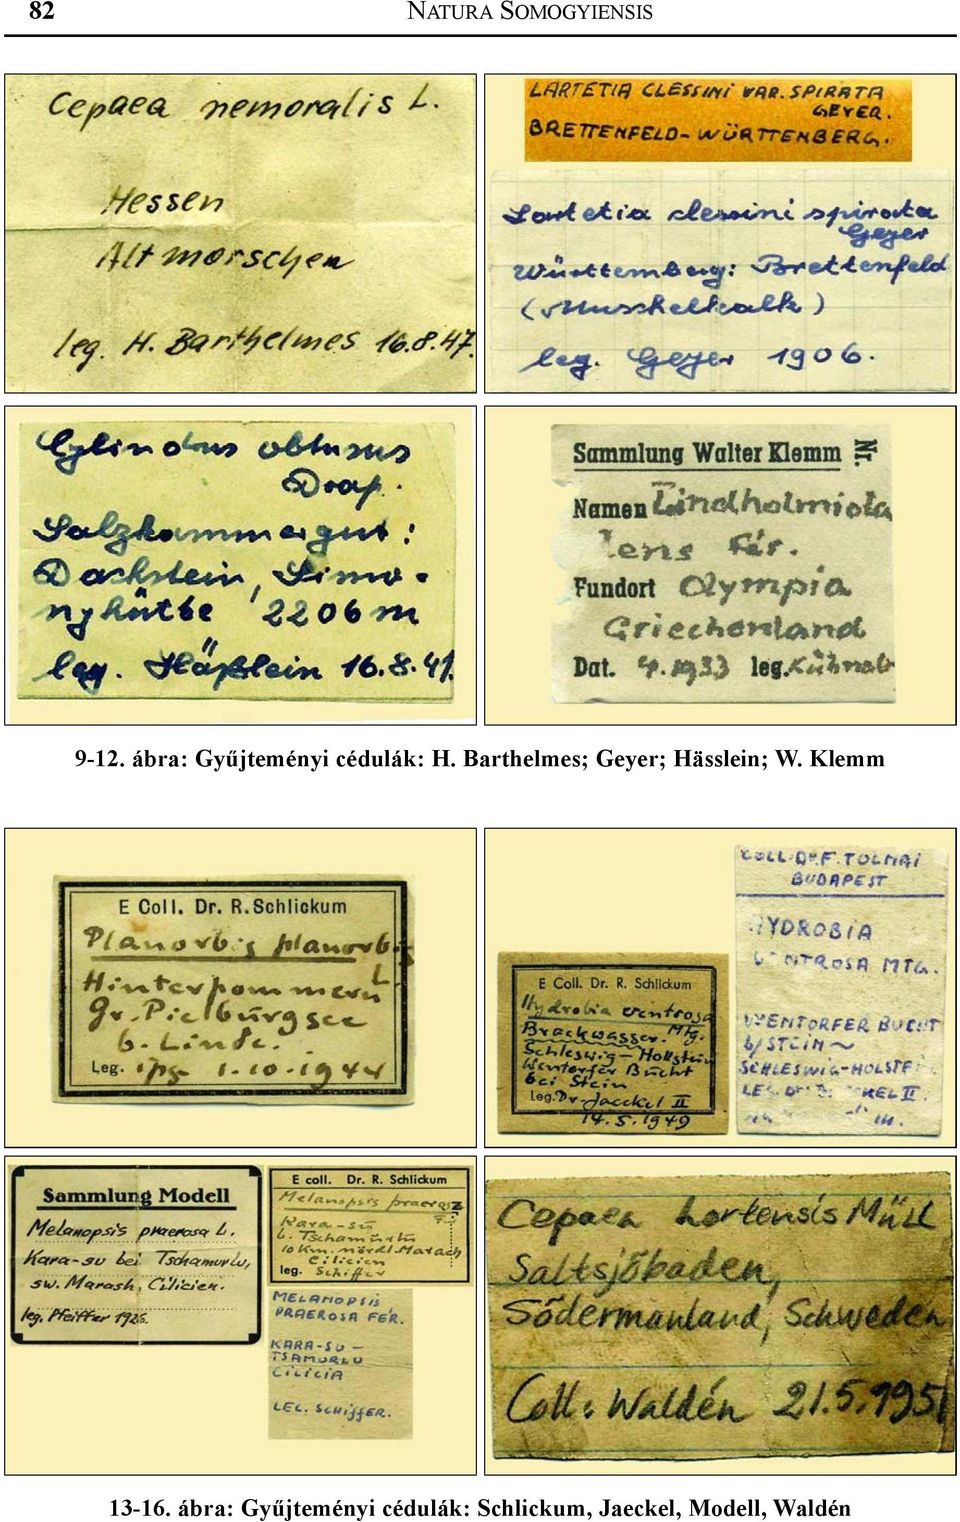 82
NATURA SOMOGYIENSIS
Cepaea nemoralis L.
Hessen
Altmorschen
leg. H. Barthelmes 16.8.47.
LARTETIA CLESSINI VAR. SPIRATA
GEYER.
BRETTENFELD-WÜRTTENBERG.
Lartetia clessini spirata
Geyer
Württemberg: Brettenfeld
(Muschelkalk)
leg. Geyer 1906.
Cylindrus obtusus
Drap.
Salzkammergut:
Dachstein, Simo-
nyhütte 2206 m
leg. Häßlein 16.8.41.
Sammlung Walter Klemm Nr.
Namen Lindholmiola
lens Fér.
Fundort Olympia
Griechenland
Dat. 4.1933 leg. Kühnelt
9-12. ábra: Gyűjteményi cédulák: H. Barthelmes; Geyer; Hässlein; W. Klemm
E Coll. Dr. R. Schlickum
Planorbis planorbis
L
Hinterpommern
Gr. Pielburgsee
b. Linde.
Leg. 1.10.1944
E Coll. Dr. R. Schlickum
Hydrobia ventrosa
Mtg.
Brackwasser.
Schleswig-Hollstein
Wentorfer Bucht
bei Stein
Leg. Dr. Jaeckel II
14.5.1949
COLL. DR. F. TOLMAI
BUDAPEST
HYDROBIA
VENTROSA MTG.
WENTORFER BUCHT
b/STEIN
SCHLESWIG-HOLSTEI
LEG. DR. KEL II.
Sammlung Modell
Melanopsis praerosa L.
Kara-su bei Tschamurlu,
sw. Marash, Cilicien.
leg. Pfeiffer 1926.
E coll. Dr. R. Schlickum
Melanopsis praerosa
Kara-su
b. Tschamurlu
10 Km. nördl. Marach
Cilicien
leg. Schiffer
MELANOPSIS
PRAEROSA FÉR.
KARA-SU-
TSAMURLU
CILICIA
LEG. SCHIFFER.
Cepaea hortensis Müll
Saltsjöbaden,
Södermanland, Schweden
Coll: Waldén 21.5.1951
13-16. ábra: Gyűjteményi cédulák: Schlickum, Jaeckel, Modell, Waldén